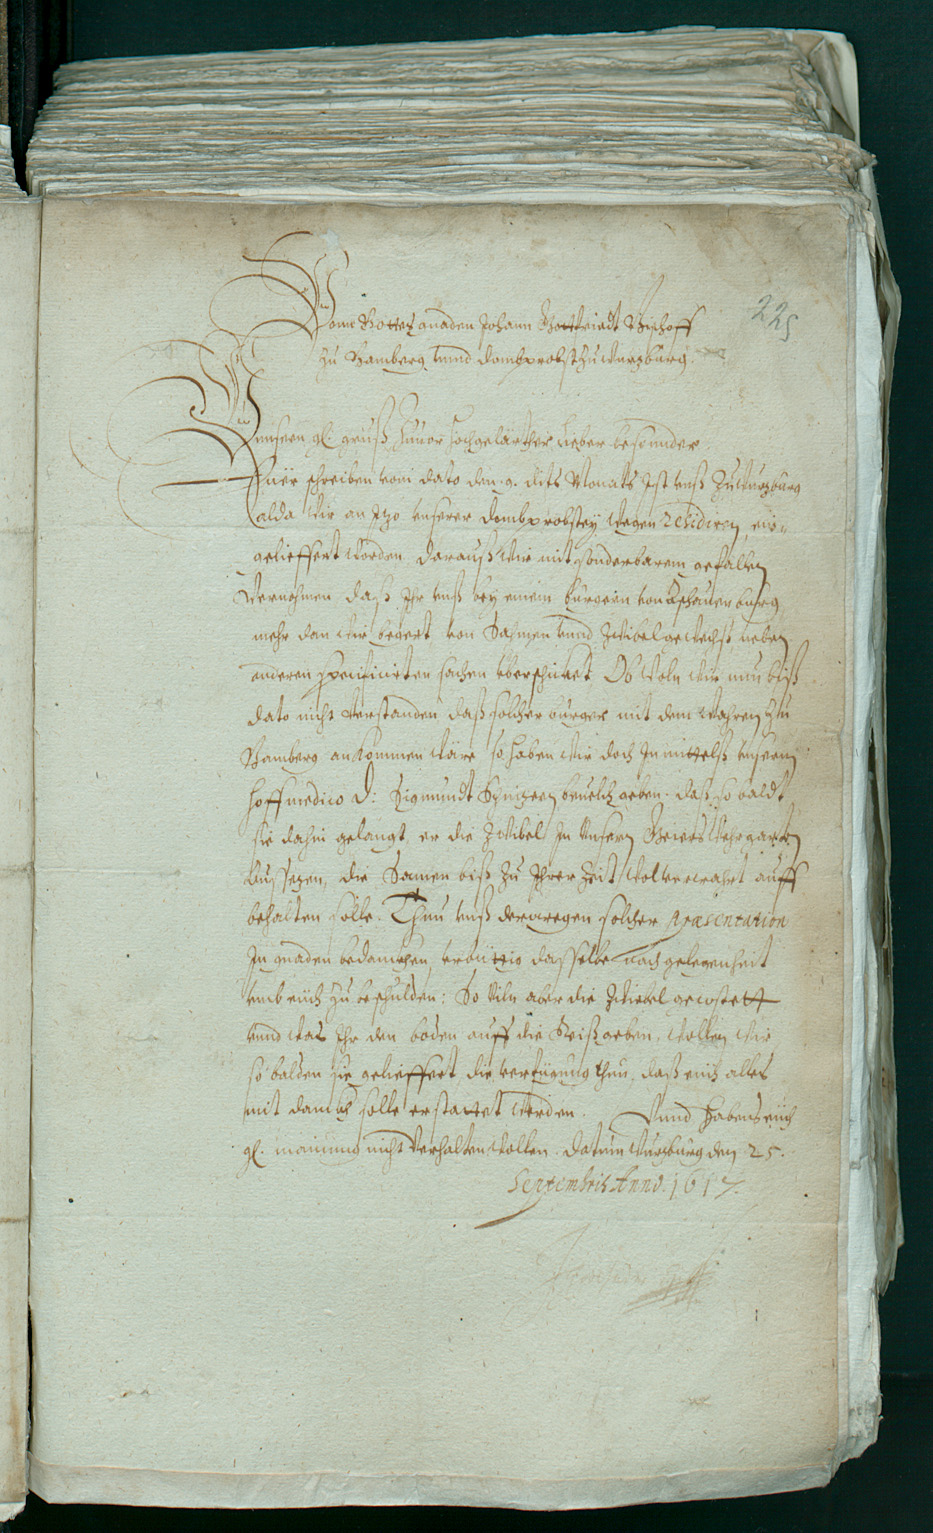 225
Vonn Gottes gnaden Johann Gottfriedt Bischoff
zu Bamberg vnnd Dombprobst zu Wurzburg.
Vnnsern gl. gruß zuuor Hochgelärther lieber besonder
Euer schreiben vom dato den 9. diß Monats Ist vnß zu Wurzburg
alda wir an Izo vnserer Dombprobstey wegen residiren, ein-
gelieffert worden, darauß wir mit sonderbarem gefallen
vernohmen daß Ihr vnß bey einem burgern von
mehr dan wir begert von Sahmen vnnd Zwibelgewechß neben
anderen specificirten sachen vberschicket, Ob woln wir nun biß
dato nicht verstanden daß solcher burger mit dem wahren zu
Bamberg ankommen wäre, so haben wir doch Inmittelß vnserm
hoffmedico D: Sigmundt beuelch geben, daß so baldt
sie dahin gelangt, er die Zwibel In Vnsern garten
die Samen biß zu Ihrer Zeit wolverwahrt auff
behalten solle. Thun vnß derwegen solcher præsentation
In gnaden bedanckhen, erbüttig dasselbe nach gelegenheit
vmb euch zu beschulden: So viln aber die Zwiebel gecostet
vnnd was Ihr den botten auff die Reiß geben, wollen wir
so balden sie gelieffert, die verfügung thun, daß euch alles
mit danckh solle erstattet werden. Vnnd habens euch
gl. mainung nicht verhalten wollen. Datum Wurzburg den 25.
Septembris Anno. 1617.